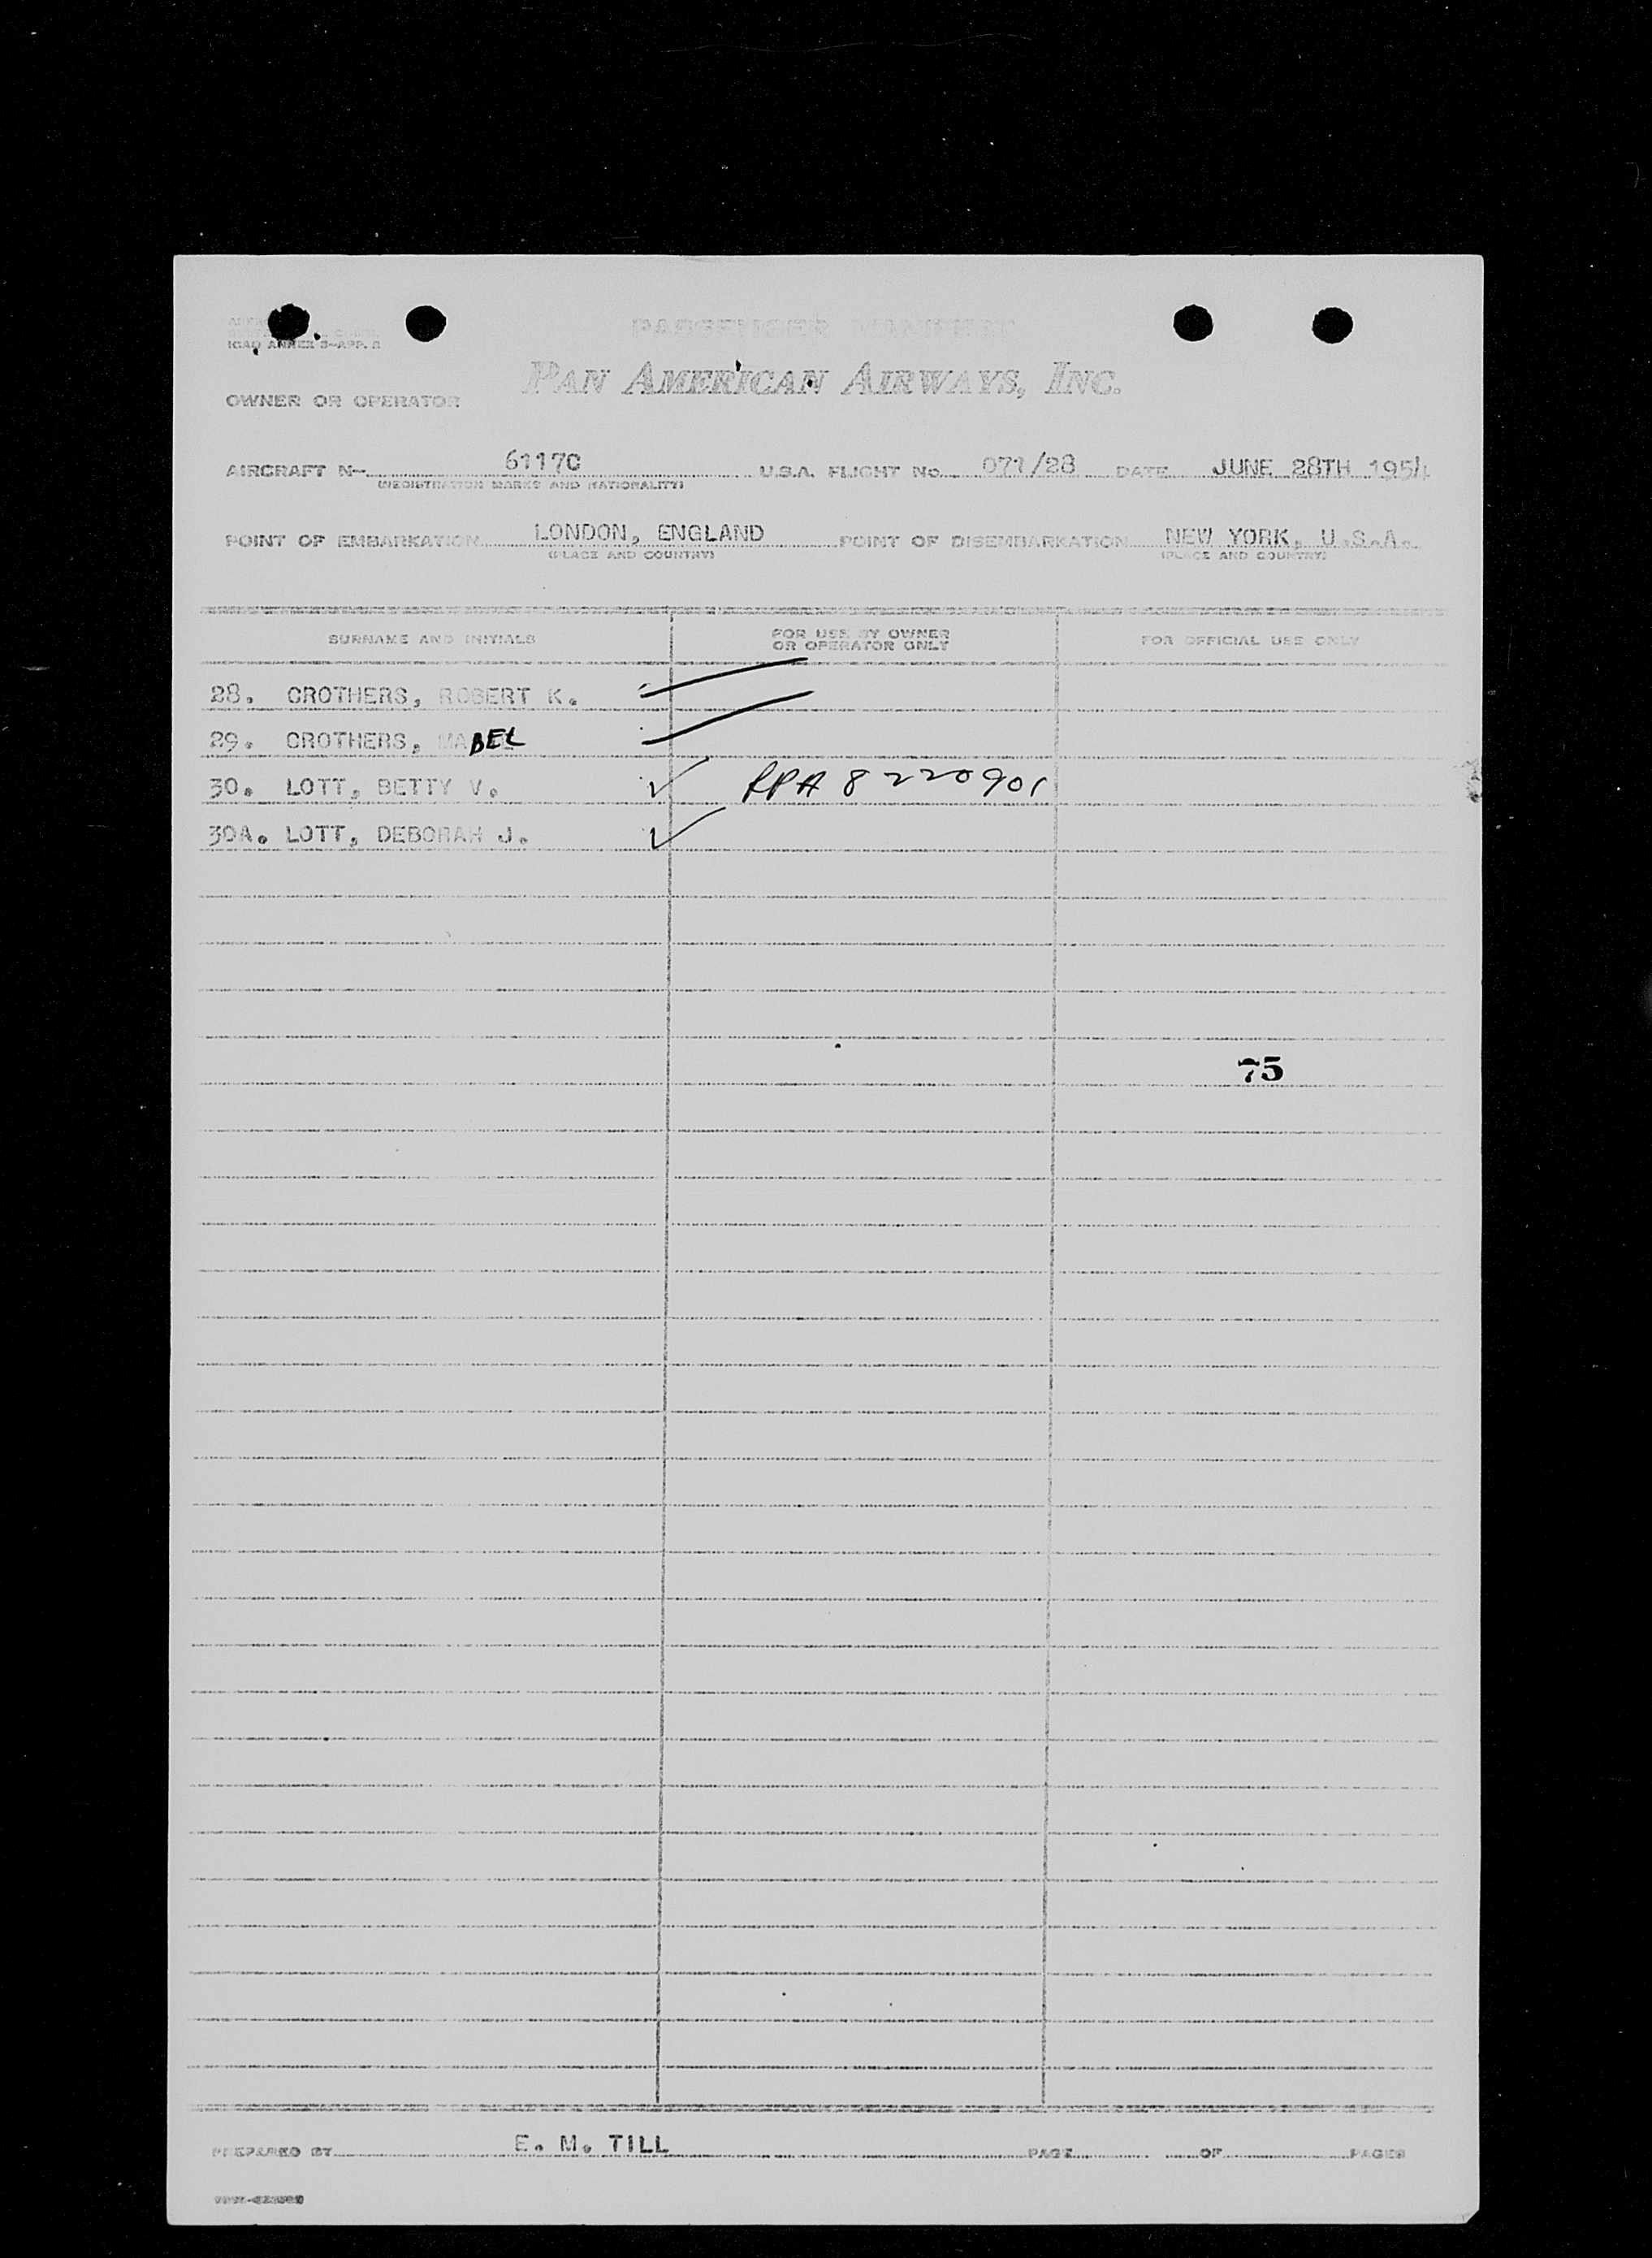 ICAO ANNEX 9-APP. 2
PASSENGER MANIFEST
PAN AMERICAN AIRWAYS, INC.
OWNER OR OPERATOR
AIRCRAFT N- 6117C U.S.A. FLIGHT NO. 071/28 DATE JUNE 28TH 1954
(REGISTRATION MARKS AND NATIONALITY)
POINT OF EMBARKATION LONDON, ENGLAND POINT OF DISEMBARKATION NEW YORK, U.S.A.
(PLACE AND COUNTRY) (PLACE AND COUNTRY)
SURNAME AND INITIALS FOR USE BY OWNER OR OPERATOR ONLY FOR OFFICIAL USE ONLY
28. CROTHERS, ROBERT K.
29. CROTHERS, MABEL
30. LOTT, BETTY V. ✓ PPA 8220901
30A. LOTT, DEBORAH J. ✓
75
PREPARED BY E. M. TILL PAGE OF PAGES